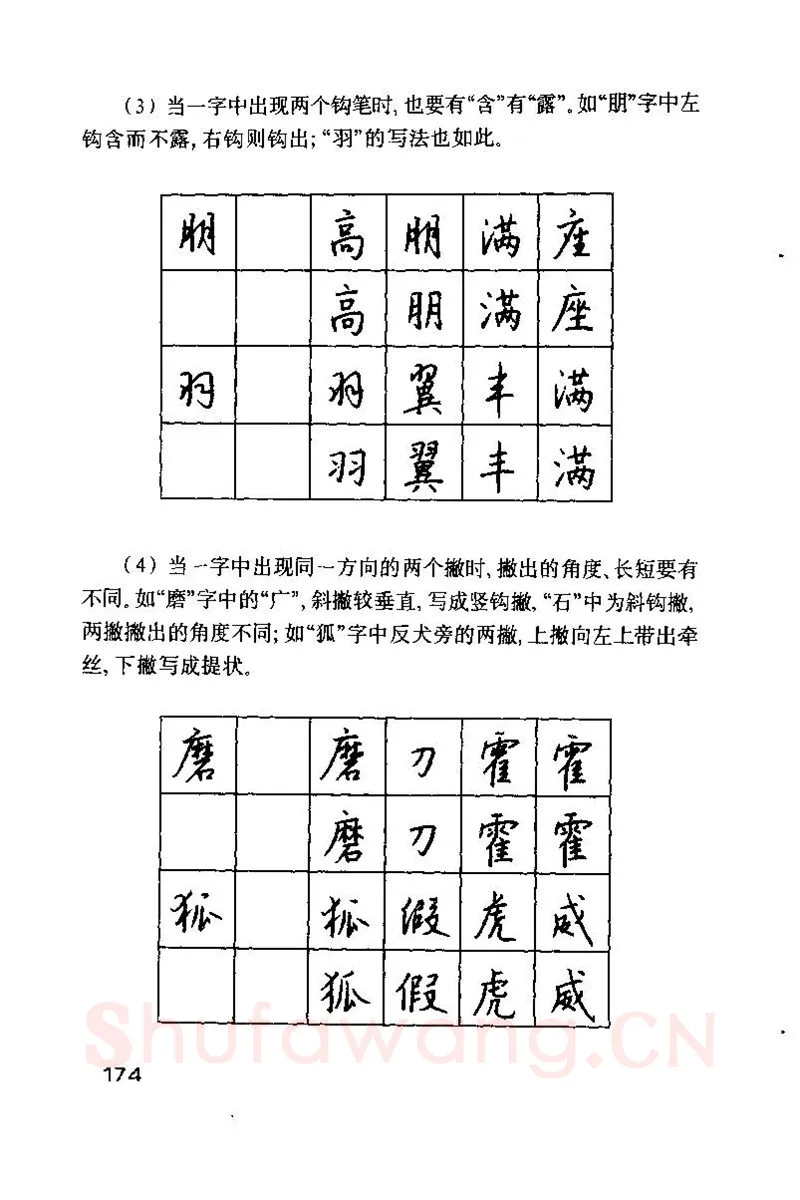 （3）当一字中出现两个钩笔时,也要有“含”有“露”。如“朋”字中左
钩含而不露,右钩则钩出;“羽”的写法也如此。
朋 高 朋 满 座
高 朋 满 座
羽 羽 翼 丰 满
羽 翼 丰 满
（4）当一字中出现同一方向的两个撇时,撇出的角度、长短要有
不同。如“磨”字中的“广”,斜撇较垂直,写成竖钩撇,“石”中为斜钩撇,
两撇撇出的角度不同;如“狐”字中反犬旁的两撇,上撇向左上带出牵
丝,下撇写成提状。
磨 磨 刀 霍 霍
磨 刀 霍 霍
狐 狐 假 虎 威
狐 假 虎 威
Shufawang.CN
174